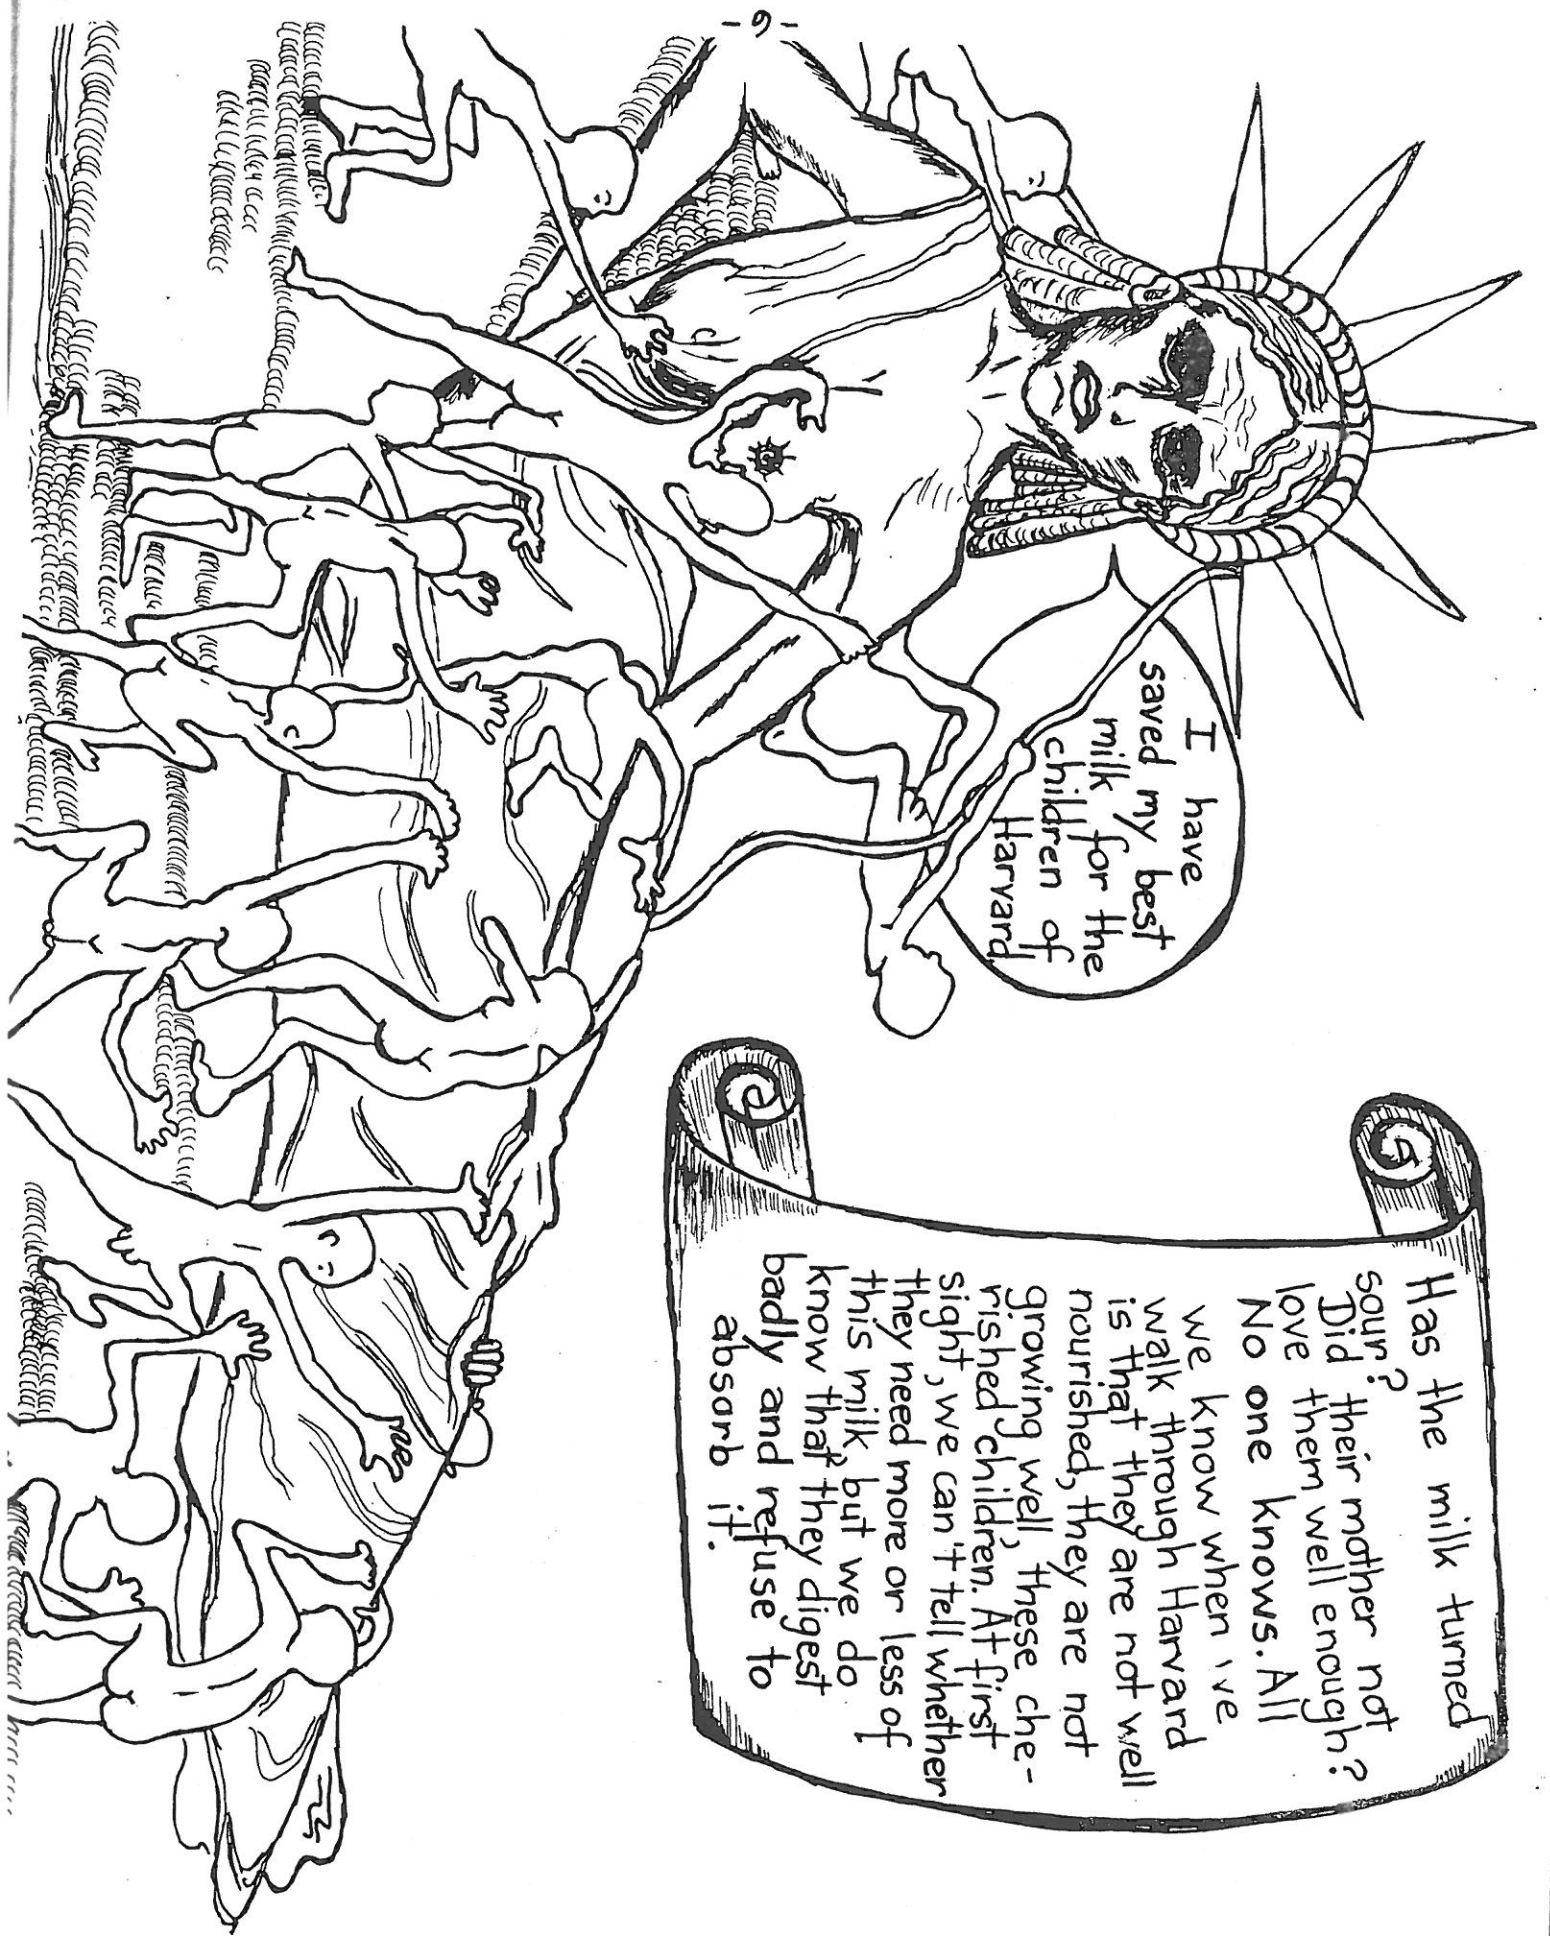 -6-
I have
saved my best
milk for the
children of
Harvard
Has the milk turned
sour?
Did their mother not
love them well enough?
No one knows. All
we know when i ve
walk through Harvard
is that they are not well
nourished, they are not
growing well, these che-
rished children. At first
sight, we can't tell whether
they need more or less of
this milk, but we do
know that they digest
badly and refuse to
absorb it.